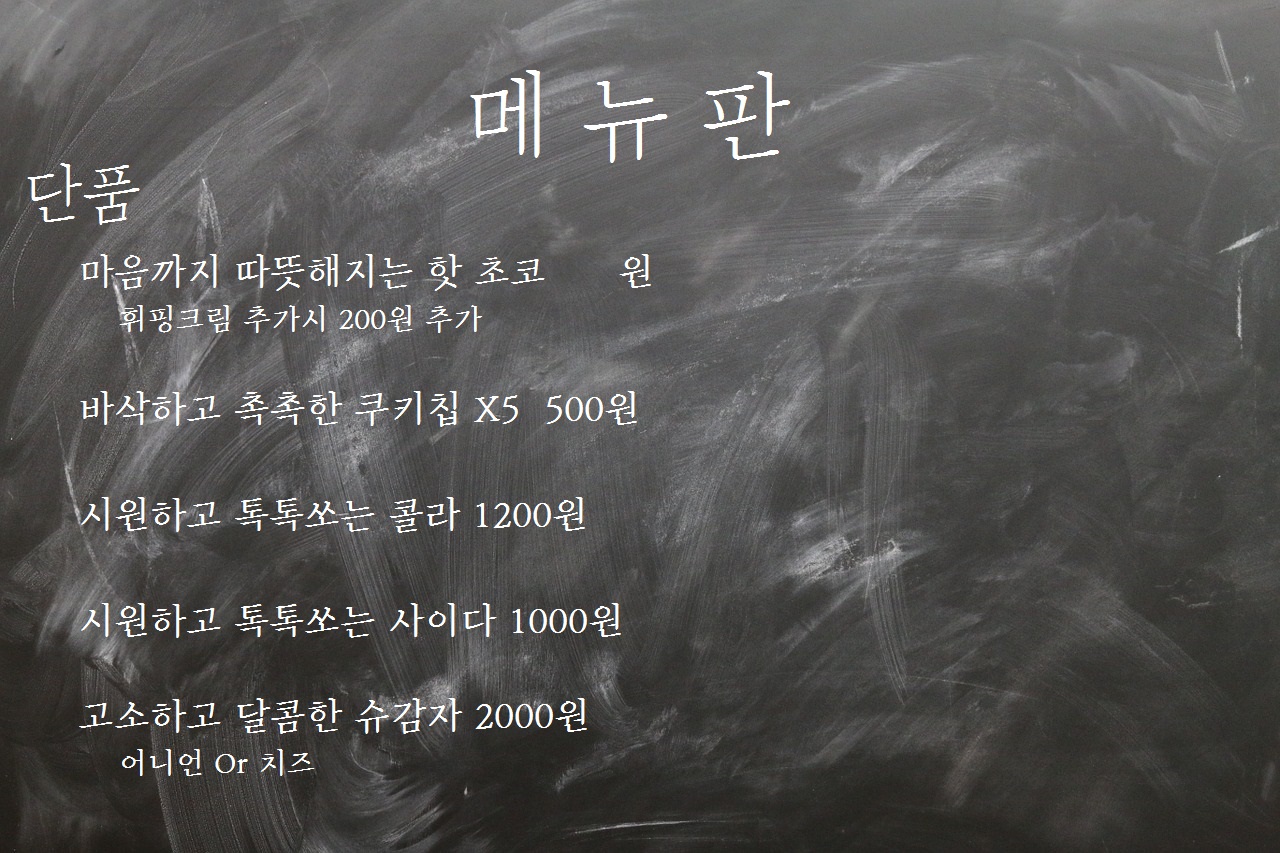 메뉴판
단품
마음까지 따뜻해지는 핫 초코 원
휘핑크림 추가시 200원 추가
바삭하고 촉촉한 쿠키칩 X5 500원
시원하고 톡톡쏘는 콜라 1200원
시원하고 톡톡쏘는 사이다 1000원
고소하고 달콤한 슈감자 2000원
어니언 Or 치즈